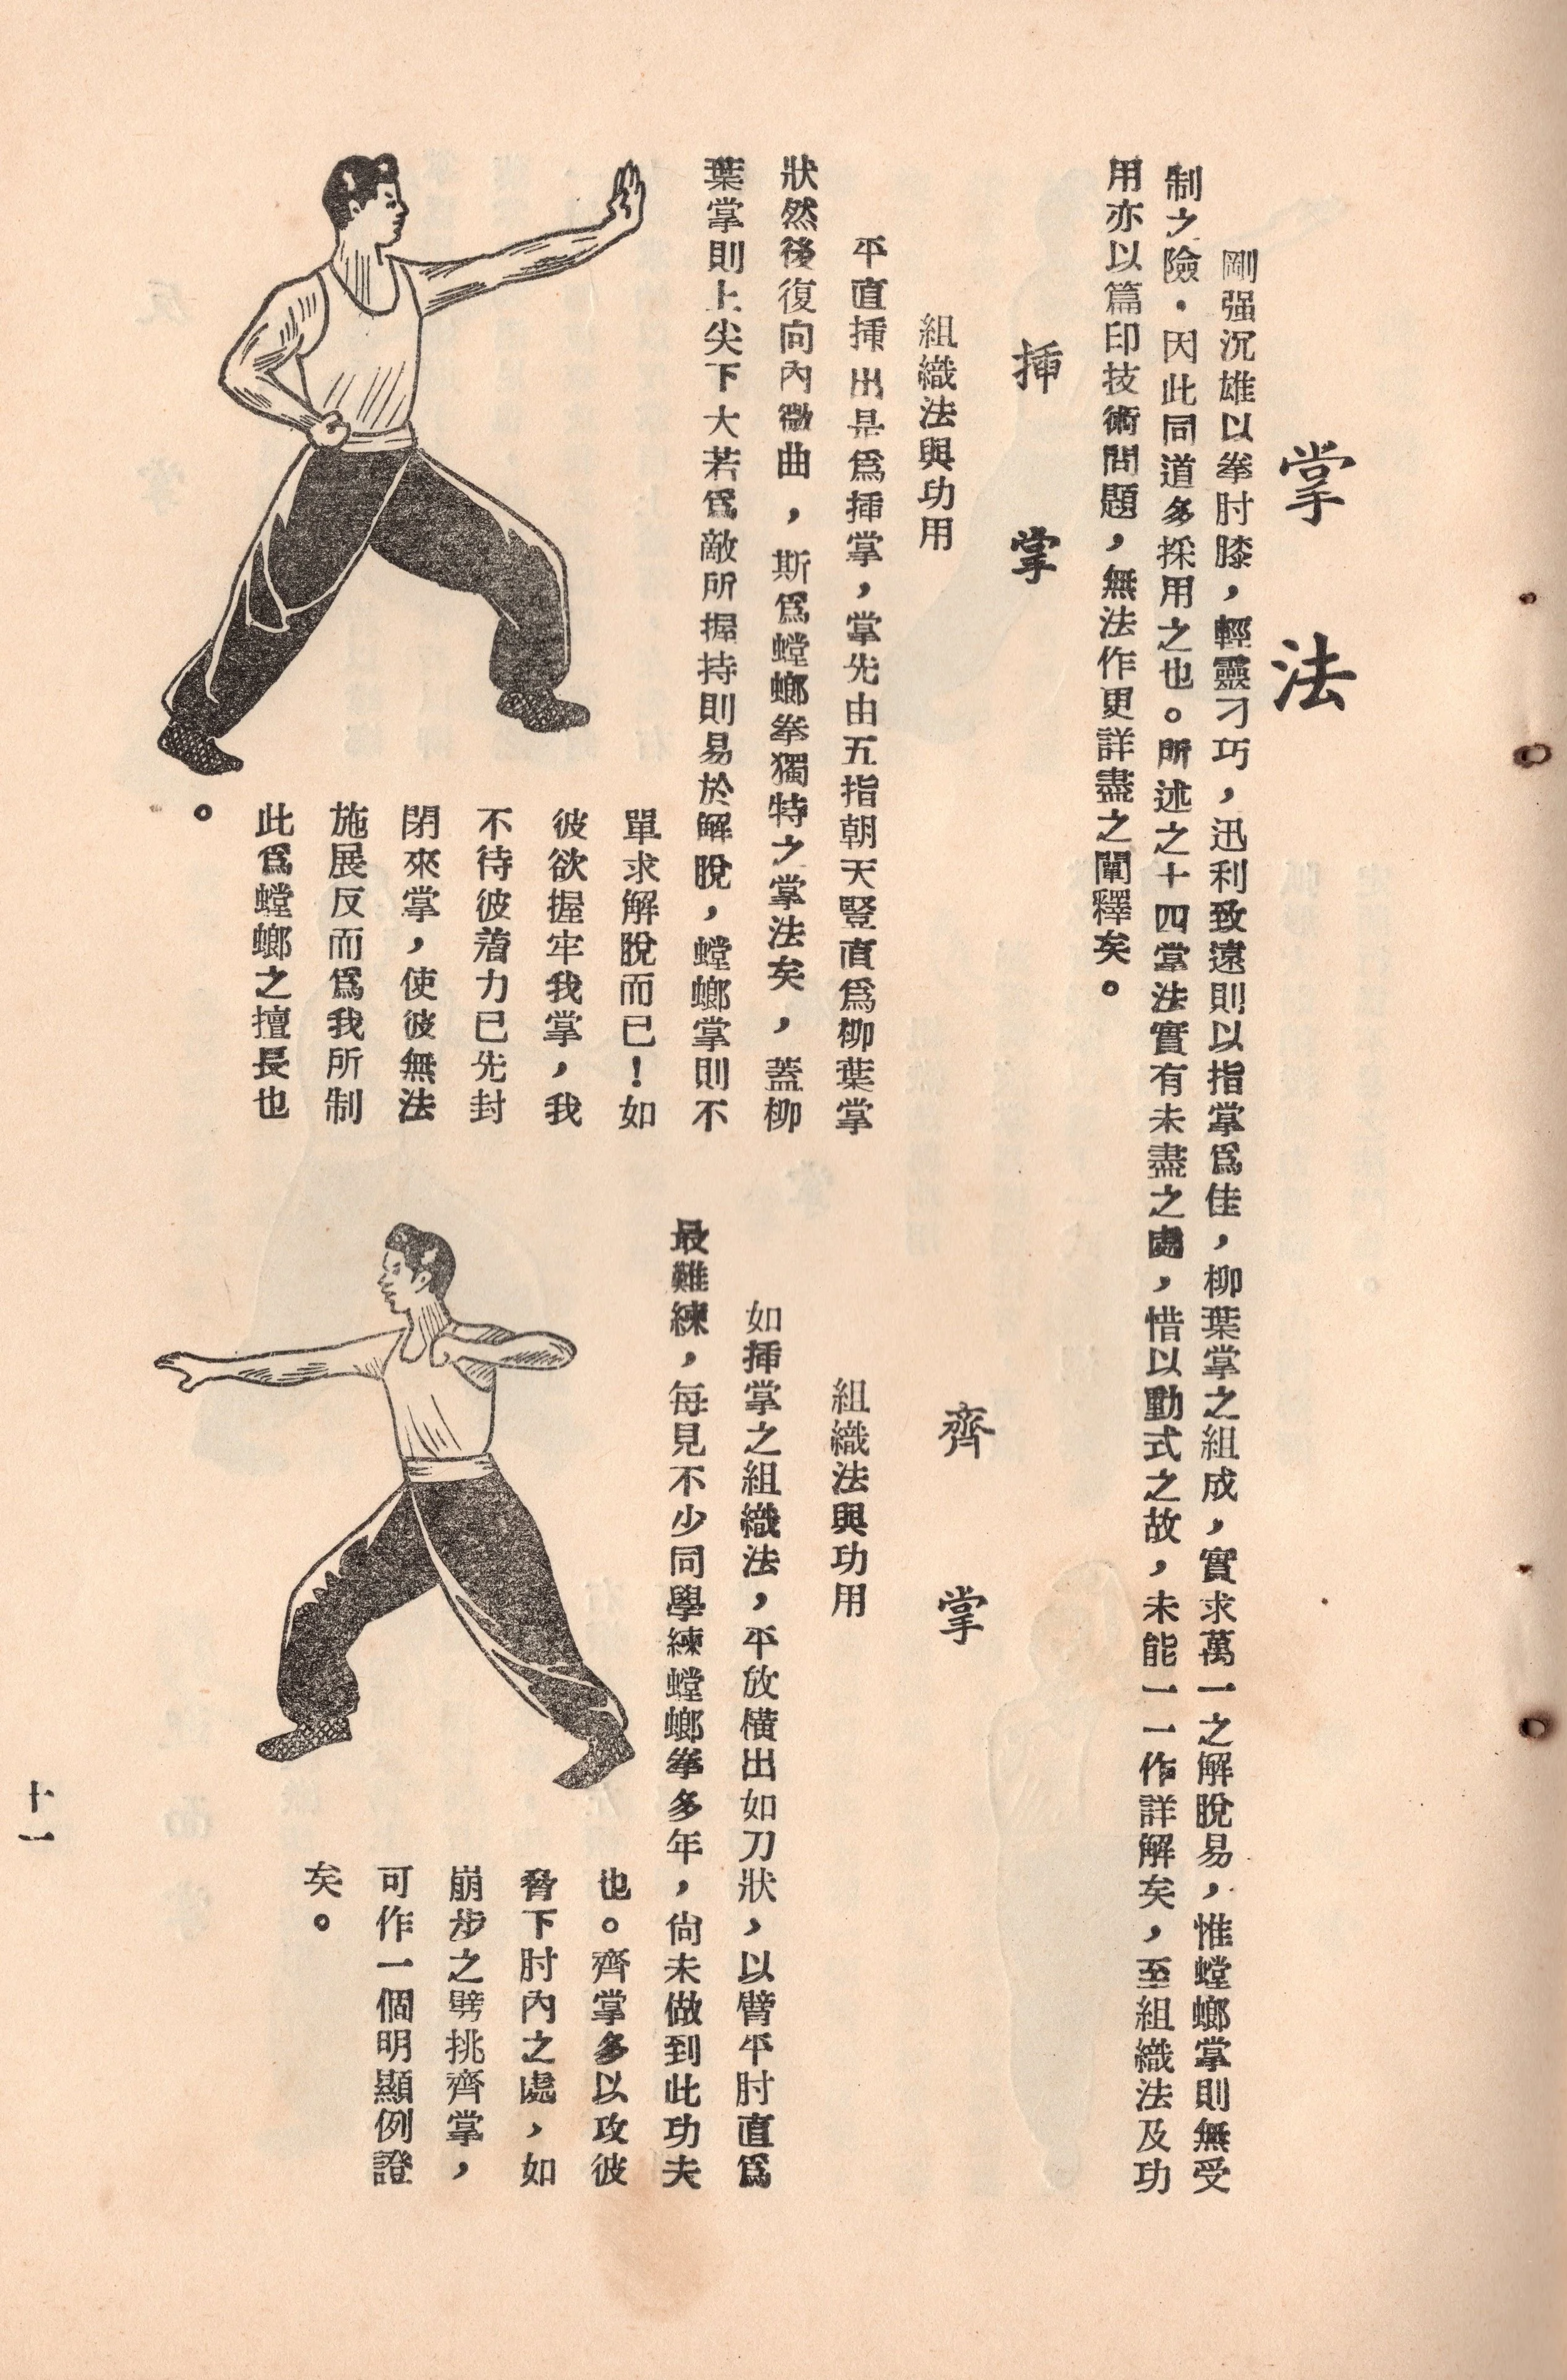 掌法
剛强沉雄以拳肘膝，輕靈刁巧，迅利致遠則以指掌爲佳，柳葉掌之組成，實求萬一之解脫易，惟螳螂掌則無受
制之險．因此同道多採用之也。所述之十四掌法實有未盡之處，惜以動式之故，未能一一作詳解矣，至組織法及功
用亦以篇印技術問題，無法作更詳盡之闡釋矣。
挿掌
組織法與功用
平直挿出是爲挿掌，掌先由五指朝天豎直爲柳葉掌
狀然後復向內微曲，斯爲螳螂拳獨特之掌法矣，蓋柳
葉掌則上尖下大若爲敵所握持則易於解脫，螳螂掌則不
單求解脫而已！如
彼欲握牢我掌，我
不待彼着力已先封
閉來掌，使彼無法
施展反而爲我所制
此爲螳螂之擅長也
。
齊掌
組織法與功用
如挿掌之組織法，平放橫出如刀狀，以臂平肘直爲
最難練，每見不少同學練螳螂拳多年，尙未做到此功夫
也。齊掌多以攻彼
脅下肘內之處，如
崩步之劈挑齊掌，
可作一個明顯例證
矣。
十一